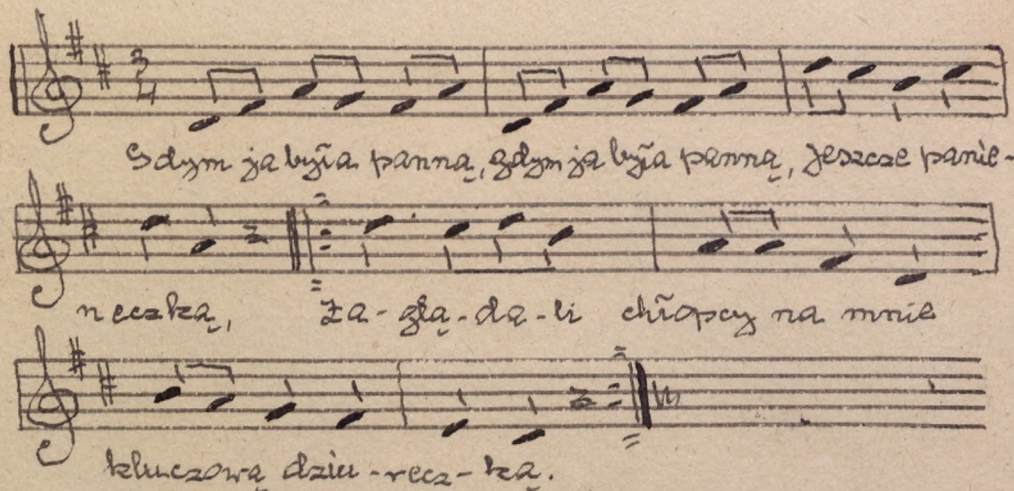 3
4
Gdym ja była panną, gdym ja była panną, jeszcze panie-
neczką, za-glą-da-li chłopcy na mnie
kluczową dziu-recz-ką.